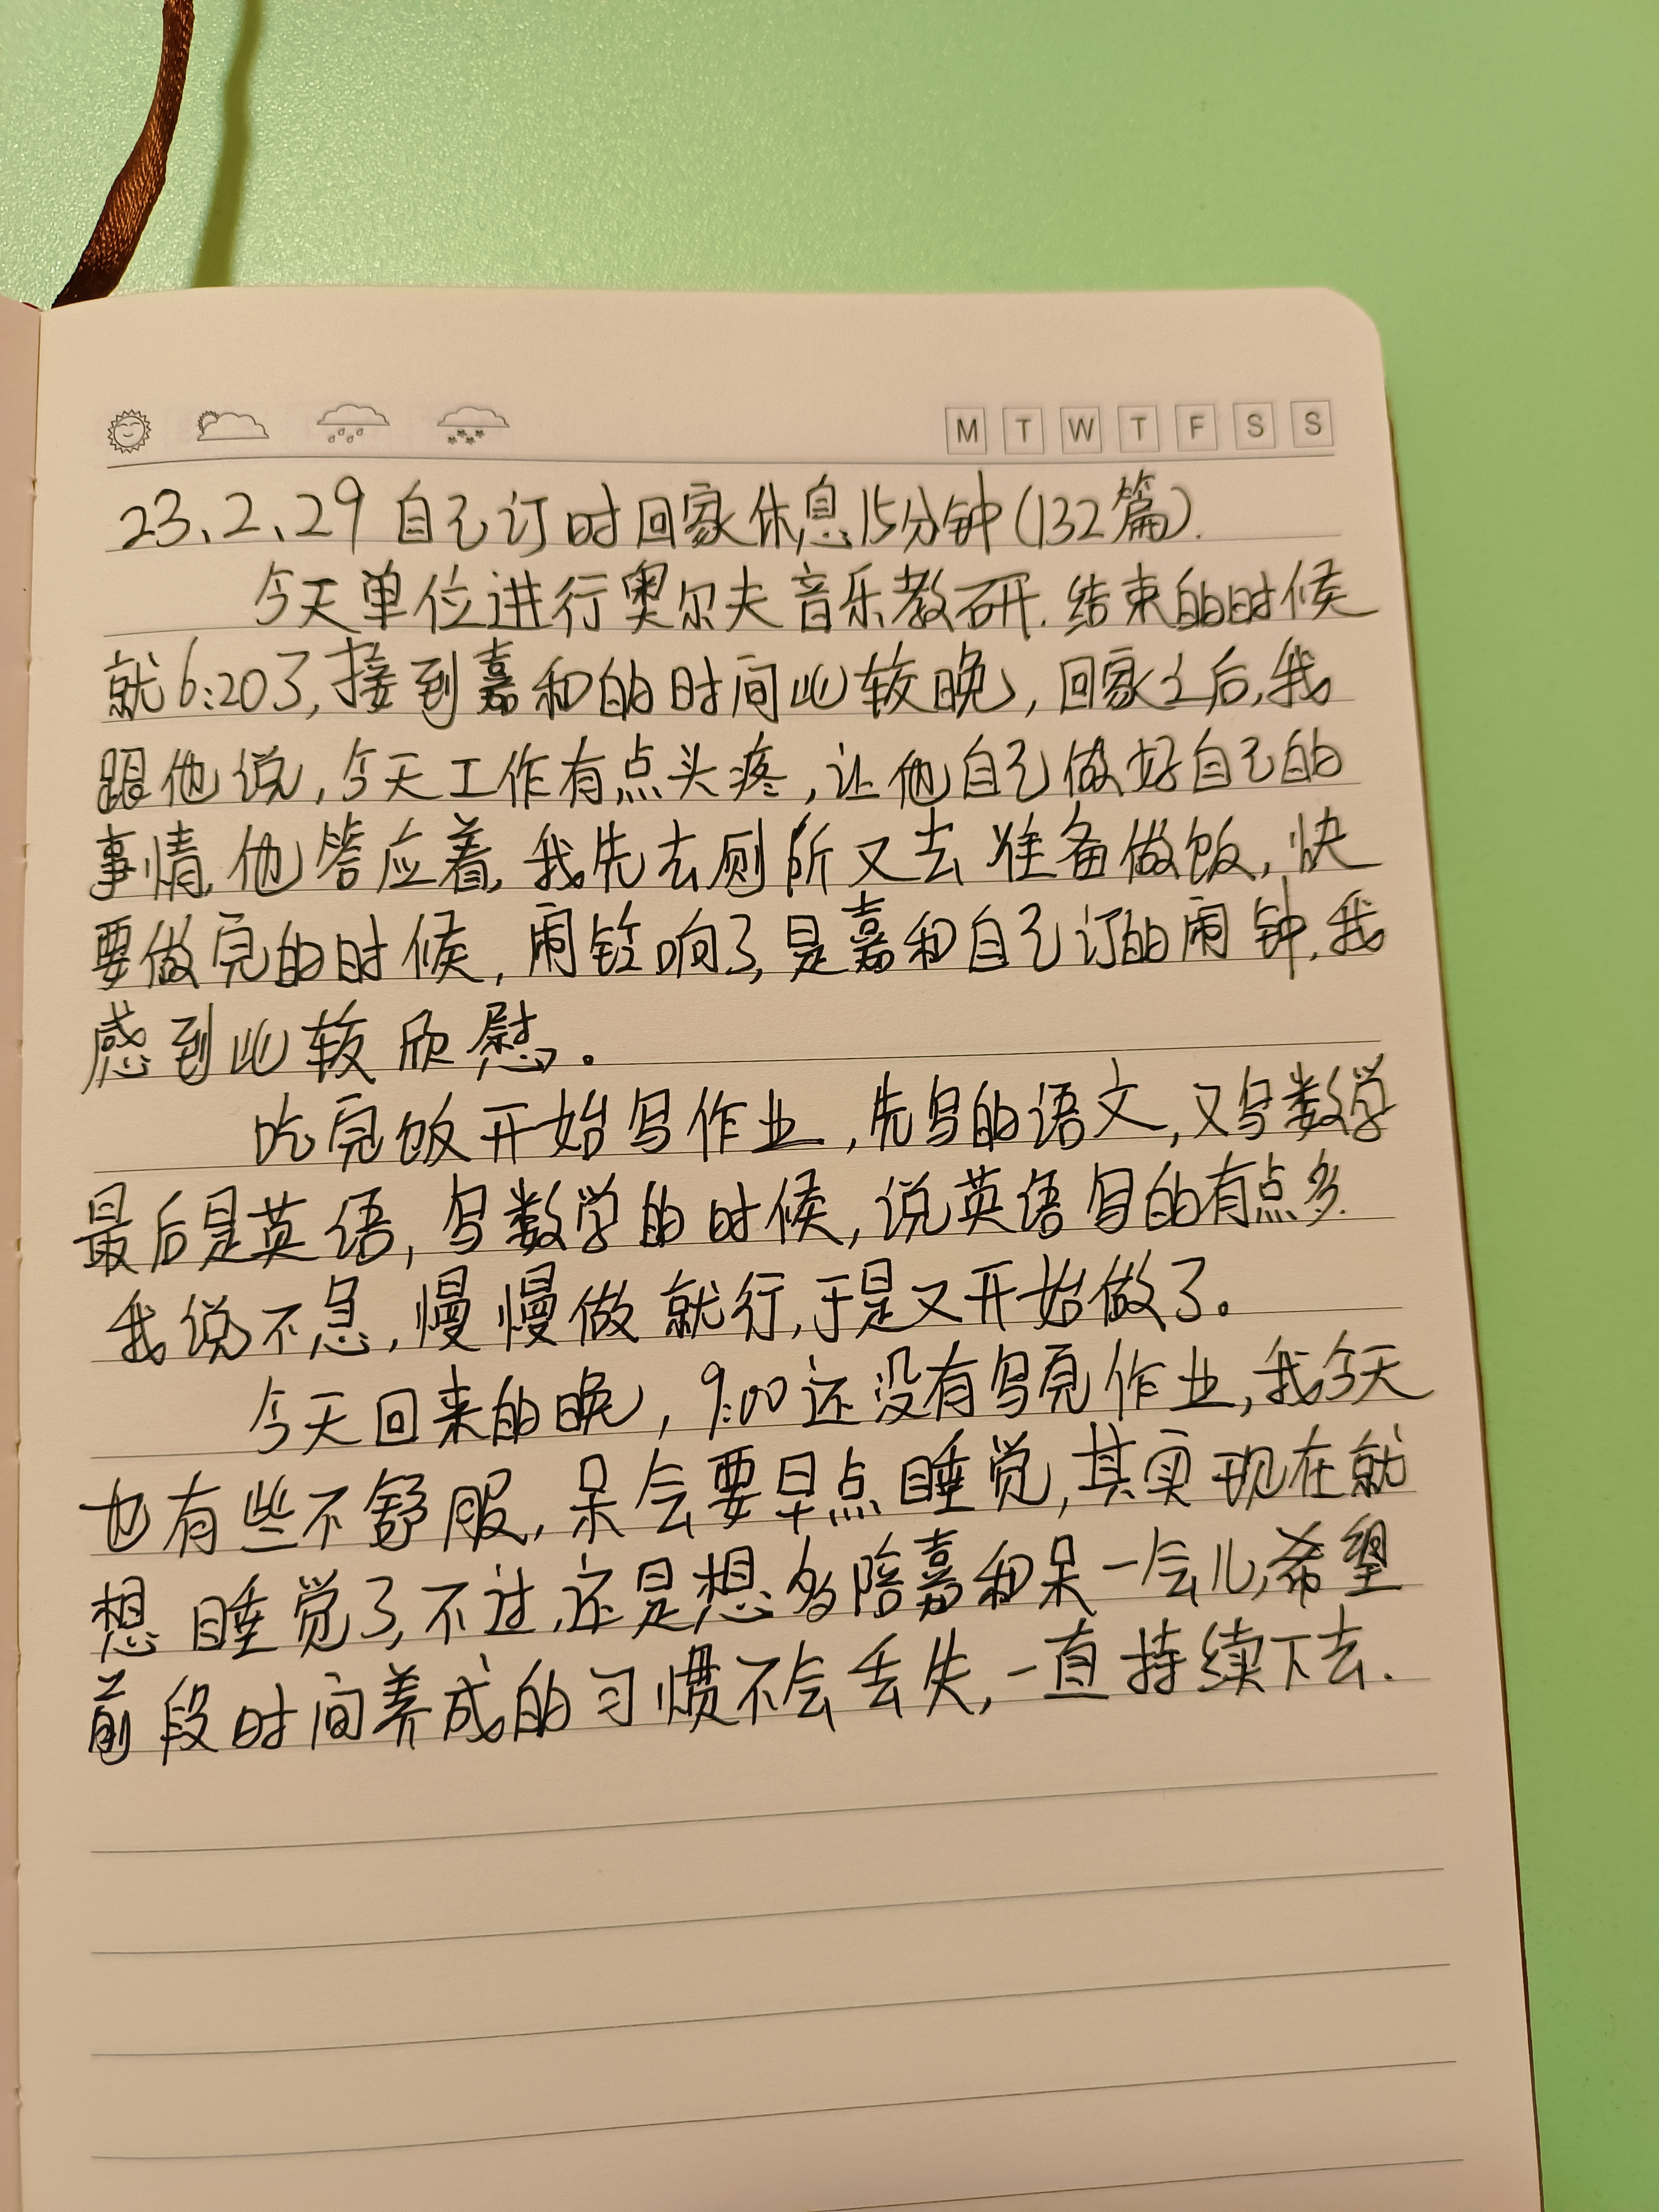 M T W T F S S
23、2、29 自己订时回家休息15分钟(132篇).
今天单位进行奥尔夫音乐教研.结束的时候
就6:20了,接到嘉和的时间比较晚,回家之后,我
跟他说,今天工作有点头疼,让他自己做好自己的
事情,他答应着,我先去厕所又去准备做饭,快
要做完的时候,闹铃响了,是嘉和自己订的闹钟,我
感到比较欣慰。
吃完饭开始写作业,先写的语文,又写数学
最后是英语,写数学的时候,说英语写的有点多.
我说不急,慢慢做就行,于是又开始做了。
今天回来的晚,9:00还没有写完作业,我今天
也有些不舒服,呆会要早点睡觉,其实现在就
想睡觉了,不过,还是想多陪嘉和呆一会儿,希望
前段时间养成的习惯不会丢失,一直持续下去.